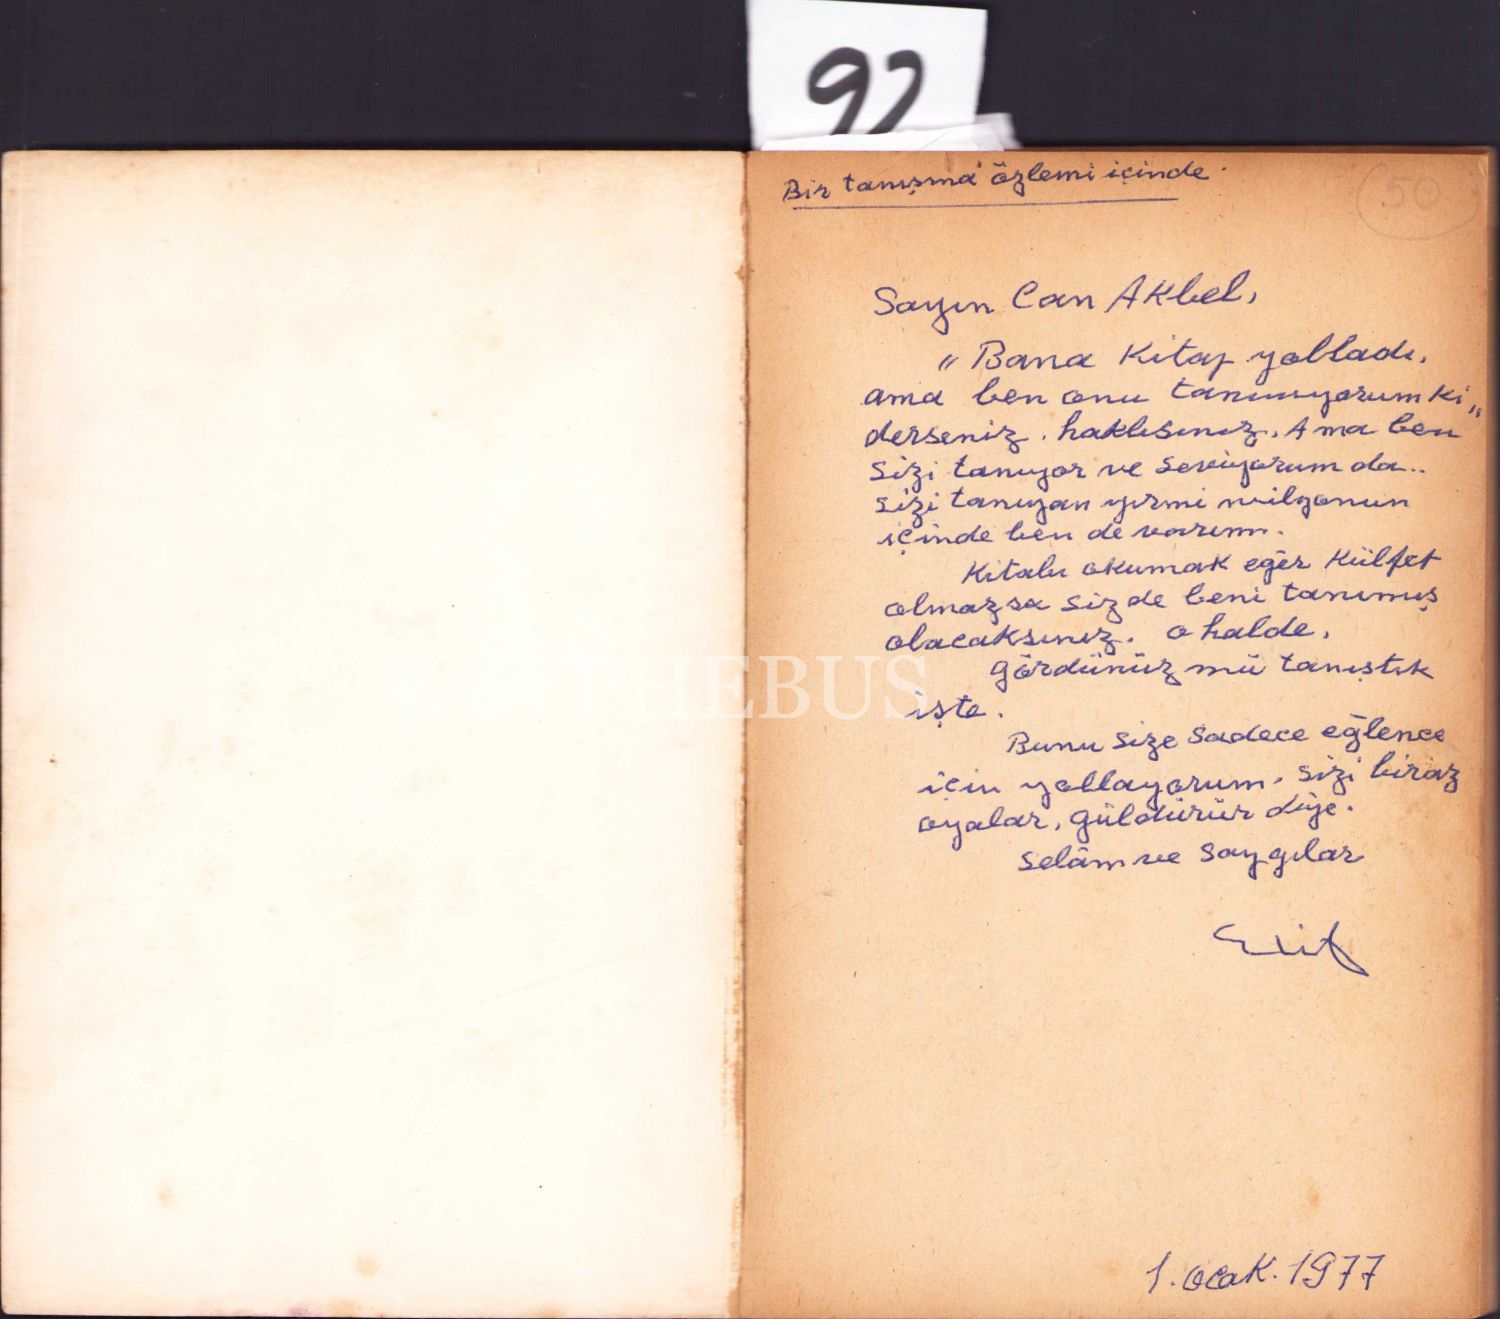 92
Bir tanışma özlemi içinde.
50
Sayın Can Akbel,
" Bana Kitap yolladı,
ama ben onu tanımıyorum ki "
derseniz, haklısınız. Ama ben
sizi tanıyor ve seviyorum da..
sizi tanıyan yirmi milyonun
içinde ben de varım.
Kitabı okumak eğer Külfet
olmazsa sizde beni tanımış
olacaksınız. o halde,
gördünüz mü tanıştık
işte.
PHEBUS
Bunu size sadece eğlence
için yollayorum. sizi biraz
oyalar, güldürür diye.
selâm ve saygılar
Elif
1. ocak. 1977